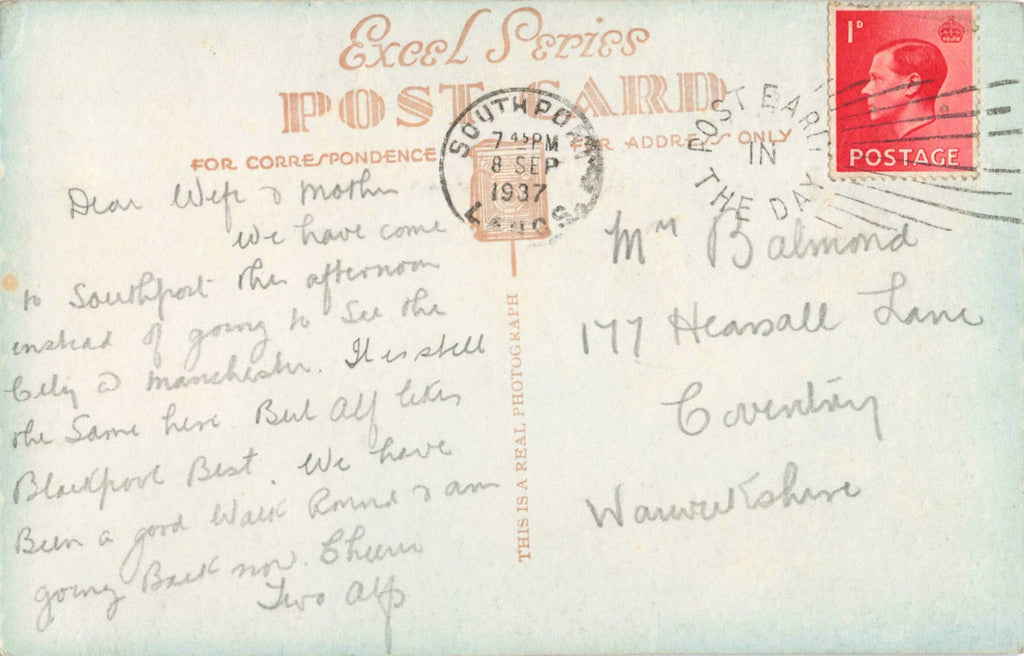 Excel Series
POST CARD
FOR CORRESPONDENCE
FOR ADDRESS ONLY
THIS IS A REAL PHOTOGRAPH
SOUTHPORT
7 45 PM
8 SEP
1937
LANCS
POST EARLY
IN
THE DAY
1D
POSTAGE
Dear Wife & Mother
We have come
to Southport this afternoon
instead of going to See the
City @ Manchester. It is still
the Same here But Alf likes
Blackpool Best. We have
Been a good Walk Round & am
going Back now. Cheerio
Two Alfs
Mrs Balmond
177 Hearsall Lane
Coventry
Warwickshire